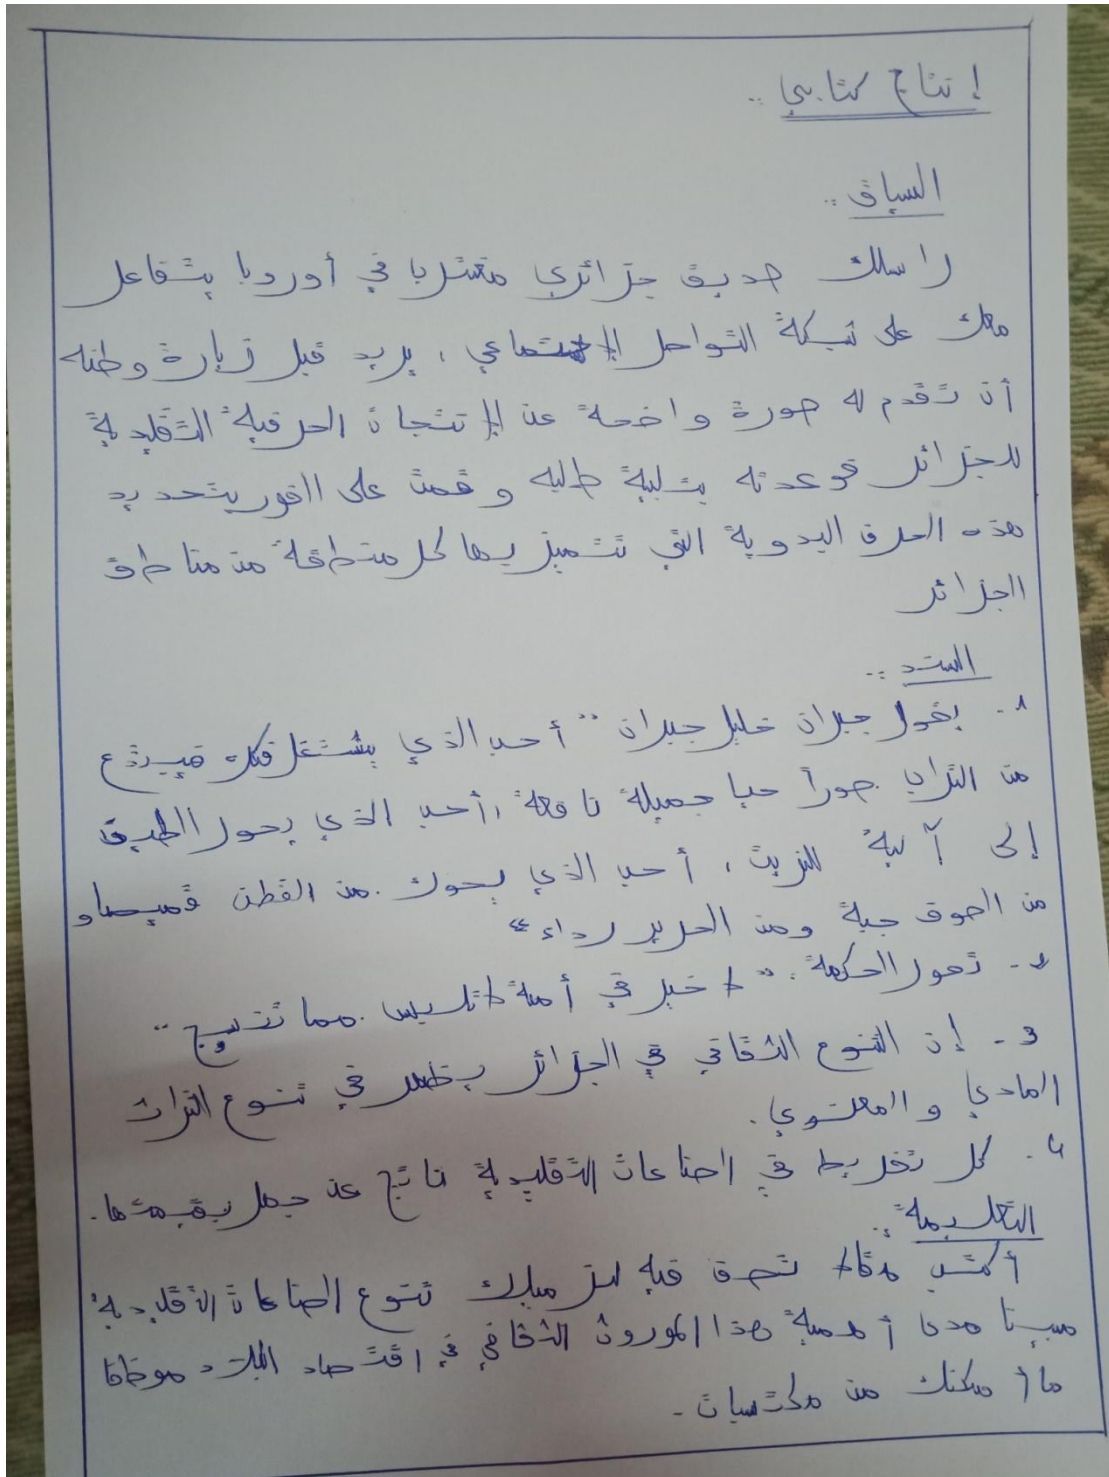 إنتاج كتابي :
السياق :
راسلك صديق جزائري مغتربا في أوروبا يتفاعل
معك على شبكة التواصل الإجتماعي ، يريد قبل زيارة وطنه
أن تقدم له صورة واضحة عن الإنتجات الحرفية التقليدية
للجزائر فوعدته بتلبية طلبه و قمت على الفور بتحديد
هذه الحرف اليدوية التي تتميز بها كل منطقة من مناطق
الجزائر
السند :
1- يقول جبران خليل جبران " أحب الذي يشتغل فكره فيبتدع
من التراب صوراً حيا جميلة نافعة ، أحب الذي يحول الطين
إلى آنية للزيت ، أحب الذي يحوك من القطن قميصا و
من الصوف جبة ومن الحرير رداء "
2- تقول الحكمة : " لا خير في أمة لا تلبس مما تنسج "
3- إن التنوع الثقافي في الجزائر يظهر في تنوع التراث
المادي و المعنوي .
4- كل تفريط في اصناعات التقليدية ناتج عن جهل بقيمتها .
التعليمة :
أكتب مقالا تعرف فيه لزميلك تنوع الصناعات التقليدية
مبينا مدى أهمية هذا الموروث الثقافي في اقتصاد البلاد موظفا
ما أمكنك من مكتسبات .